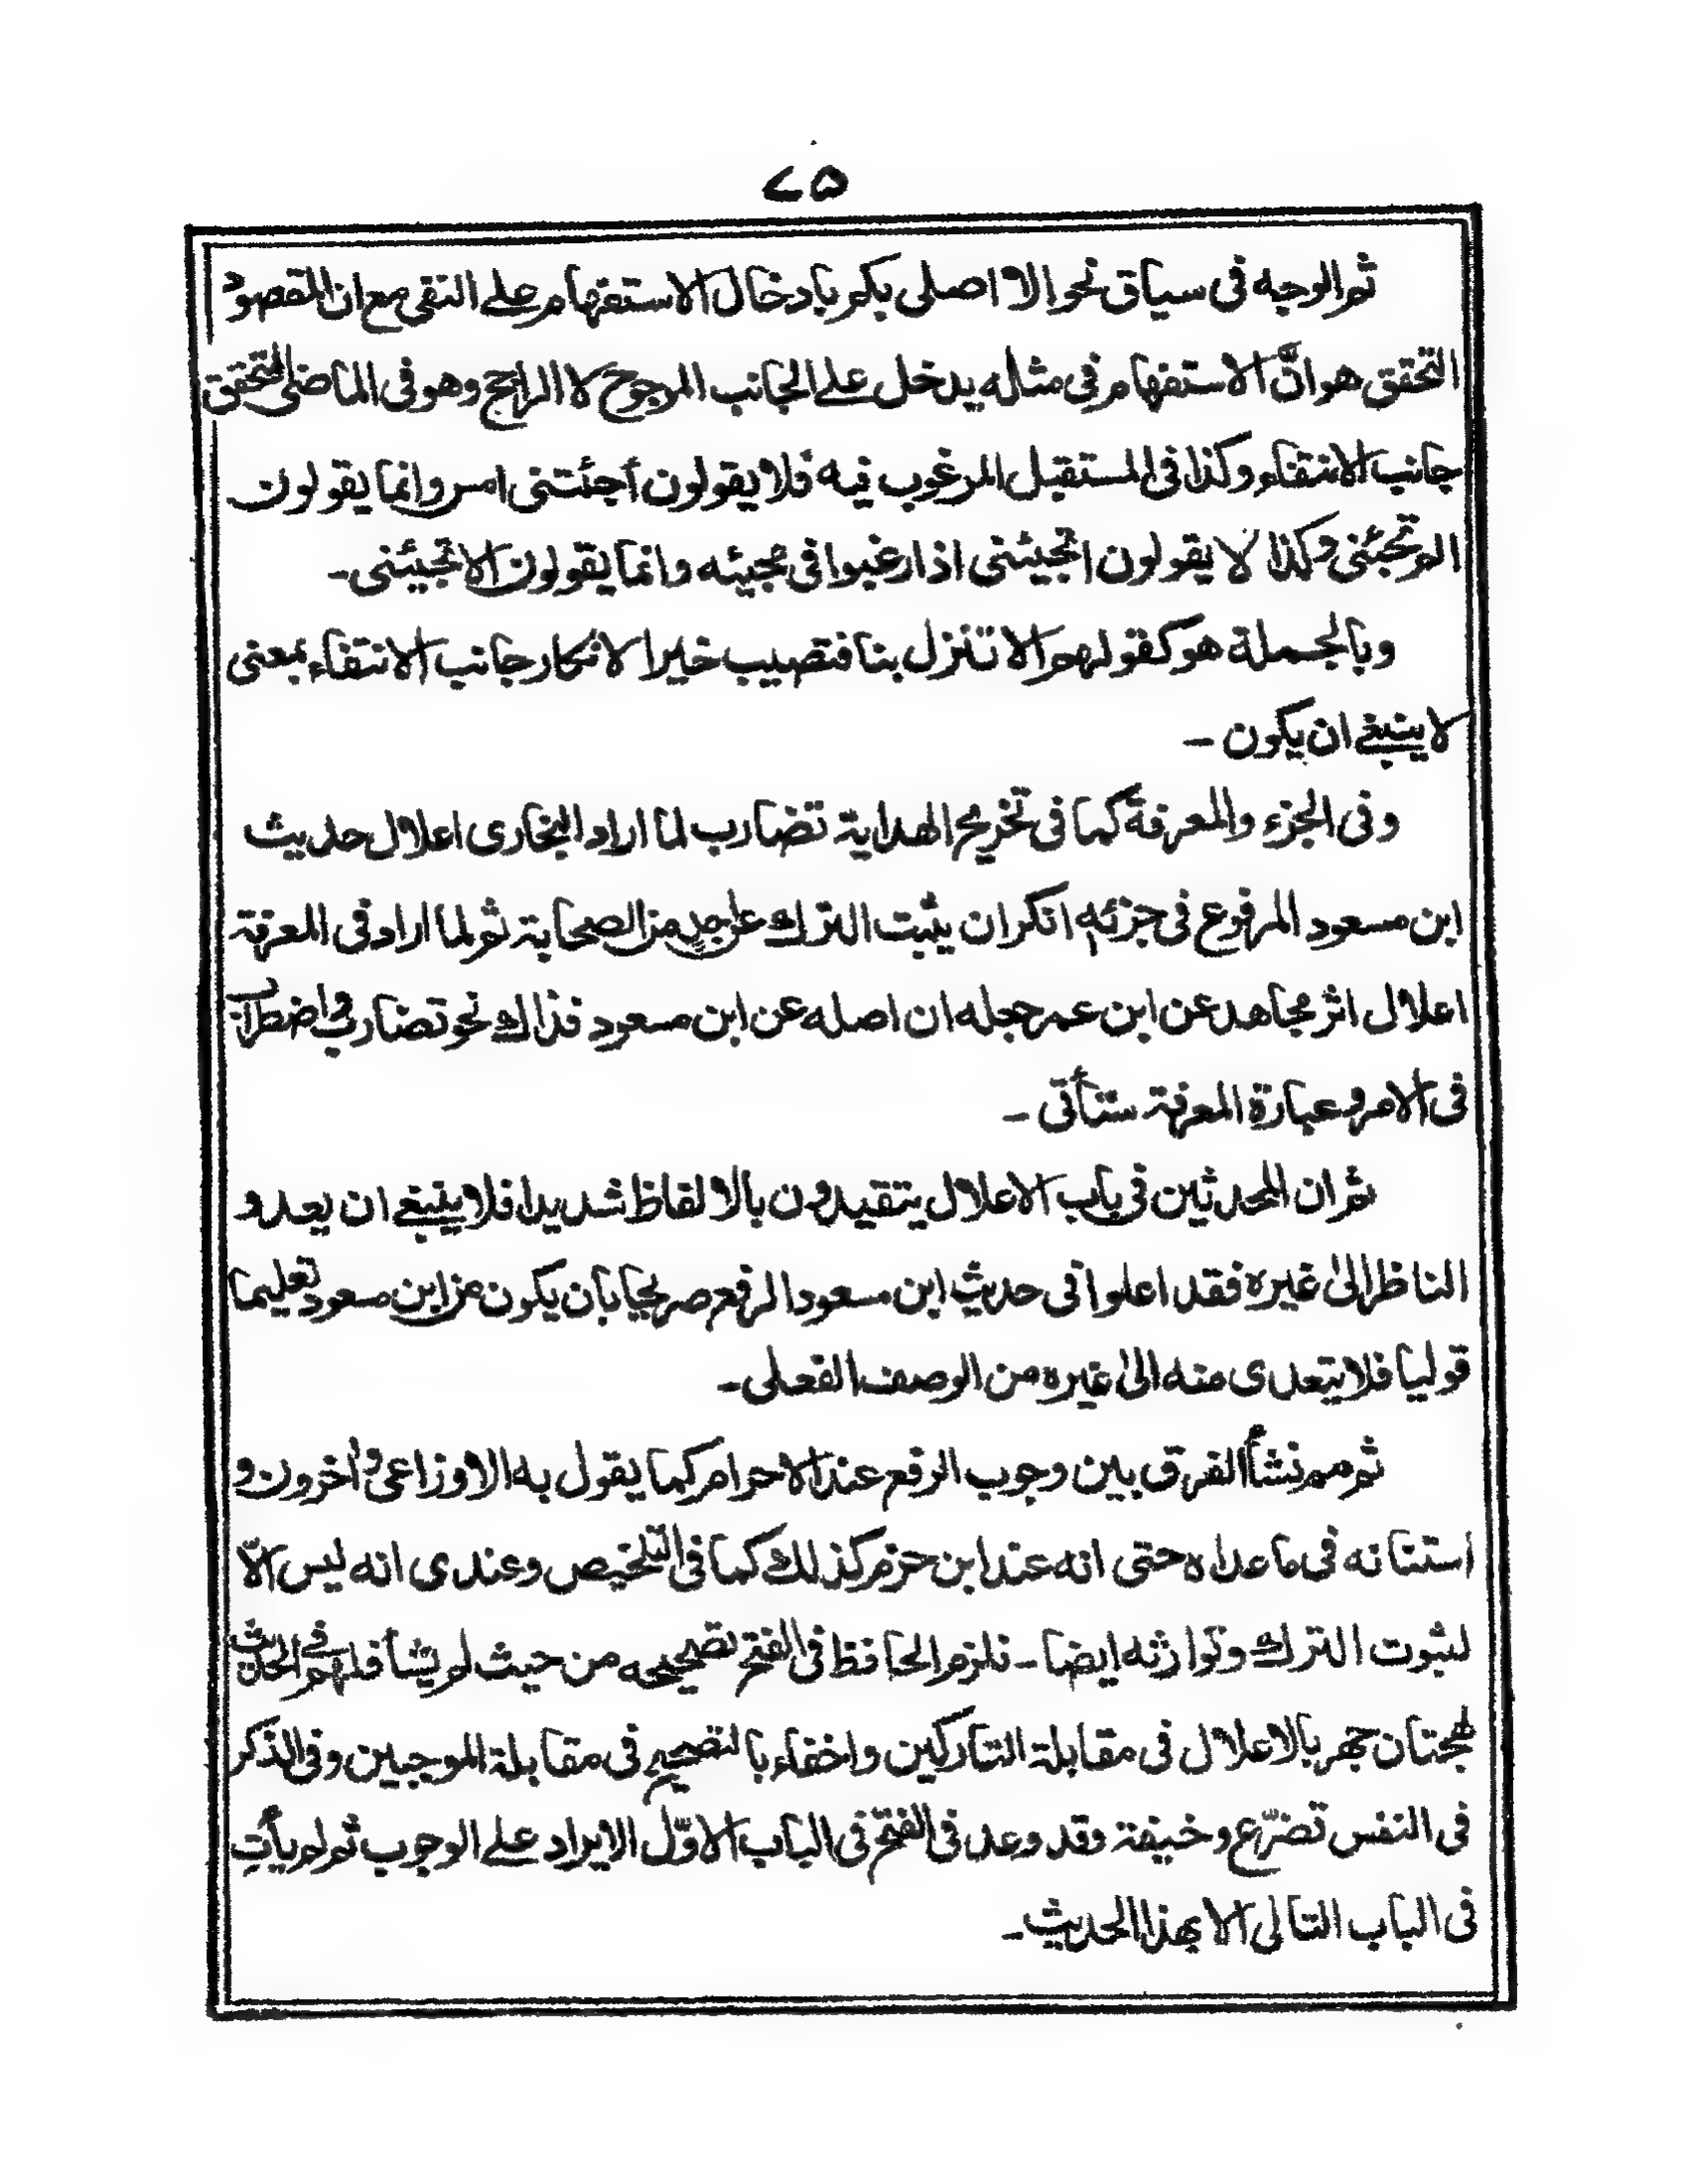 ٧٥
ثم الوجه فى سياق نحو الا اصلى بكم بادخال الاستفهام على النفى مع ان المقصود
التحقق هو انّ الاستفهام فى مثاله يدخل على الجانب المرجوح لا الراجح وهو فى الماضى المتحقق
جانب الانتفاء وكذا فى المستقبل المرغوب فيه فلا يقولون أجئتنى امس وانما يقولون
الم تجئنى وكذا لا يقولون اتجيئنى اذا رغبوا فى مجيئه وانما يقولون الا تجيئنى-
وبالجملة هو كقولهم الا تنزل بنا فتصيب خيرا لانكار جانب الانتفاء بمعنى
لا ينبغى ان يكون -
وفى الجزء والمعرفة كما فى تخريج الهداية تضارب لما اراد البخارى اعلال حديث
ابن مسعود المرفوع فى جزئه انكر ان يثبت الترك عن احد من الصحابة ثم لما اراد فى المعرفة
اعلال اثر مجاهد عن ابن عمر جعله ان اصله عن ابن مسعود فذاك نحو تضارب واضطراب
فى الامر وعبارة المعرفة ستأتى -
ثم ان المحدثين فى باب الاعلال يتقيدون بالالفاظ شديدا فلا ينبغى ان يعدو
الناظر الىٰ غيره فقد اعلوا فى حديث ابن مسعود الرفع صريحا بان يكون عن ابن مسعود تعليما
قوليا فلا يتعدى منه الىٰ غيره من الوصف الفعلى-
ثم مم نشأ الفرق بين وجوب الرفع عند الاحرام كما يقول به الاوزاعى واخرون و
استنانه فى ماعداه حتى انه عند ابن حزم كذلك كما فى التلخيص وعندى انه ليس الّا
لثبوت الترك وتوارثه ايضا - فلزم الحافظ فى الفتح تصحيحه من حيث لم يشأ فلهم فى الحديث
لهجتان جهر بالاعلال فى مقابلة التاركين واخفاء بالتصحيح فى مقابلة الموجبين وفى الذكر
فى النفس تضرّع وخيفة وقد وعد فى الفتح فى الباب الاوّل الايراد على الوجوب ثم لم يأتِ
فى الباب التالى الا بهذا الحديث-